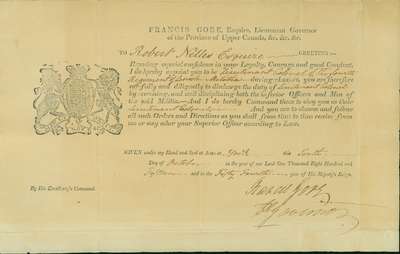 FRANCIS GORE, Esquire, Lieutenant Governor
of the Province of Upper Canada, &c. &c. &c.
TO Robert Nelles Esquire GREETING—
Reposing especial confidence in your Loyalty, Courage and good Conduct,
I do hereby appoint you to be Lieutenant Colonel of the Fourth
Regiment of Lincoln Militia during pleasure, you are therefore
carefully and diligently to discharge the duty of Lieutenant Colonel
by exercising and well disciplining both the inferior Officers and Men of
the said Militia—And I do hereby Command them to obey you as their
Lieutenant Colonel And you are to observe and follow
all such Orders and Directions as you shall from time to time receive from
me or any other your Superior Officer according to Law.
GIVEN under my Hand and Seal at Arms at York this
Day of October in the year of our Lord One Thousand Eight Hundred and
Fifteen and in the Fifty year of His Majesty's Reign.
Francis Gore
Governor
By His Excellency's Command.